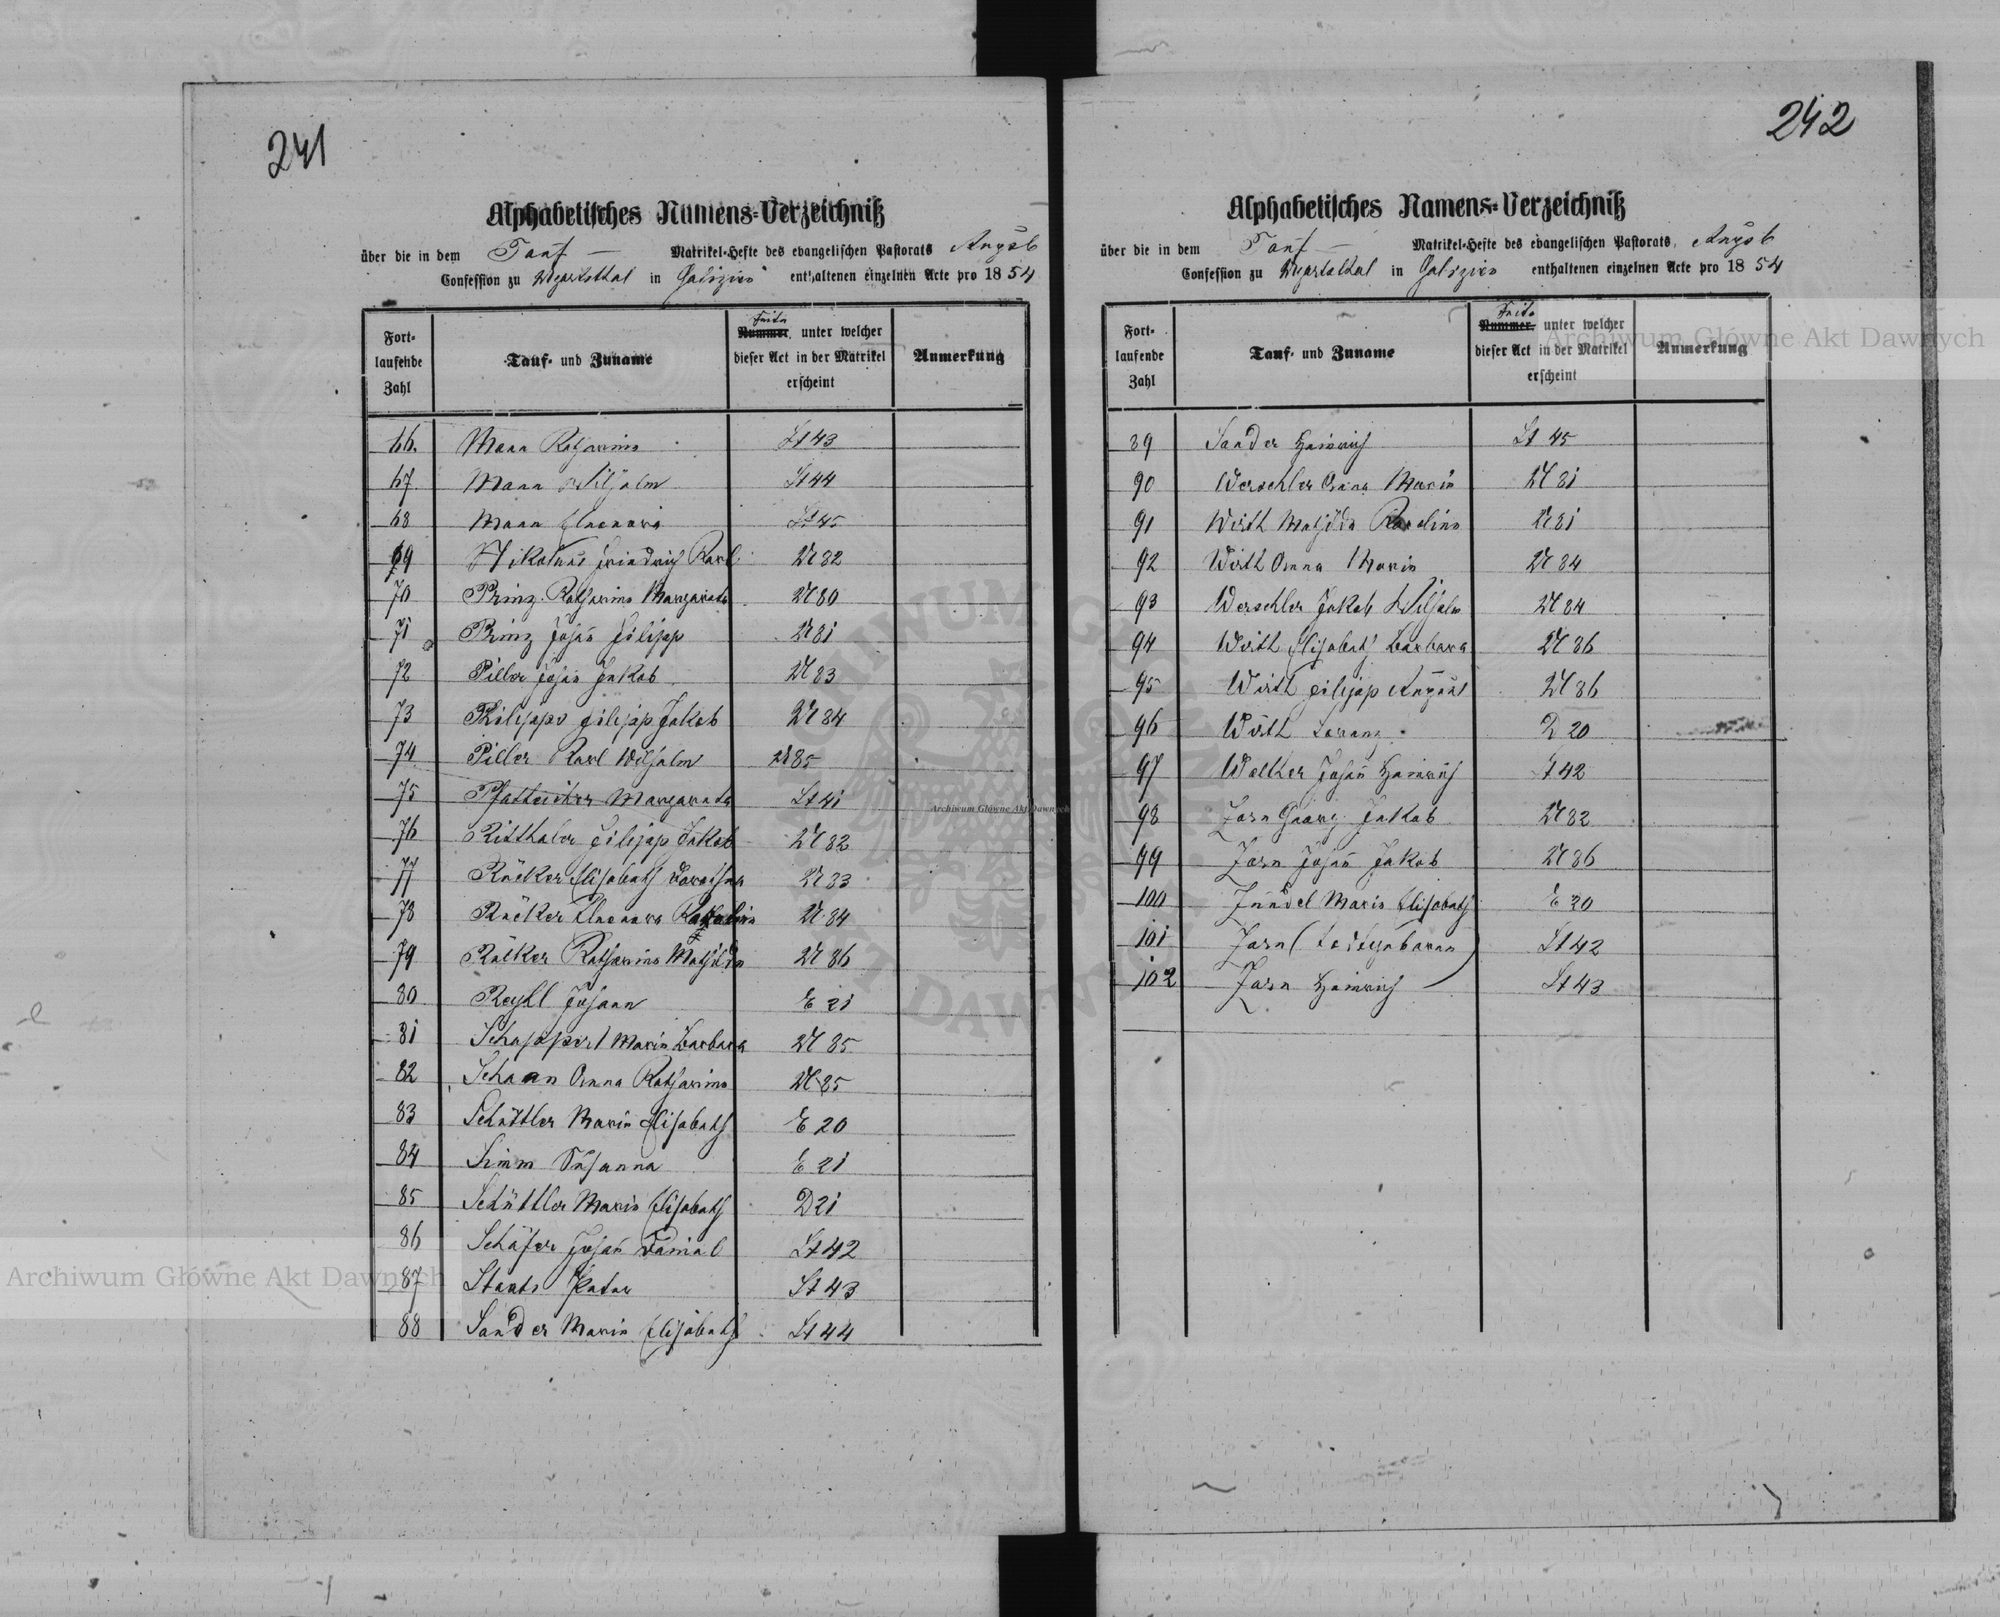 241
Alphabetisches Namens-Verzeichniß
über die in dem Tauf- Matrikel-Hefte des evangelischen Pastorats Augsb
Confession zu Ugartsthal in Galizien enthaltenen einzelnen Acte pro 1854
Fort-laufende Zahl Tauf- und Zuname Seite Nummer, unter welcher dieser Act in der Matrikel erscheint Anmerkung
66. Mann Katharina St 43
67 Mann Wilhelm St 44
68 Mann Eleonora St 45
69 Nikolaus Friedrich Karl U 82
70 Prinz Katharina Margaretha U 80
71 Prinz Johañ Filipp U 81
72 Piller Johañ Jakob U 83
73 Filipp Jakob U 84
74 Piller Karl Wilhelm U 85
75 Margaretha St 41
76 Ritthaler Filipp Jakob U 82
77 Räcker Elisabeth Dorothea U 83
78 Räcker Eleonora U 84
79 Räcker Katharina Mathilda U 86
80 Reyhl Johann E 21
81 Schappert Maria Barbara U 85
82 Schaan Anna Katharina U 85
83 Schüttler Maria Elisabeth E 20
84 Simm Susanna E 21
85 Schüttler Maria Elisabeth D 21
86 Schäfer Johañ Daniel St 42
87 Staats Peter St 43
88 Sander Maria Elisabeth St 44
242
Alphabetisches Namens-Verzeichniß
über die in dem Tauf- Matrikel-Hefte des evangelischen Pastorats, Augsb
Confession zu Ugartsthal in Galizien enthaltenen einzelnen Acte pro 1854
Fort-laufende Zahl Tauf- und Zuname Seite Nummer, unter welcher dieser Act in der Matrikel erscheint Anmerkung
89 Sander Heinrich St 45
90 Werschler Anna Maria U 81
91 Wirth Mathilda Karolina U 81
92 Wirth Anna Maria U 84
93 Werschler Jakob Wilhelm U 84
94 Wirth Elisabeth Barbara U 86
95 Wirth Filipp August U 86
96 Wirth Lorenz D 20
97 Walker Johañ Heinrich St 42
98 Zorn Georg Jakob U 82
99 Zorn Johañ Jakob U 86
100 Maria Elisabeth E 20
101 Zorn (todtgeboren) St 42
102 Zorn Heinrich St 43
Archiwum Główne Akt Dawnych
Archiwum Główne Akt Dawnych
Archiwum Główne Akt Dawnych